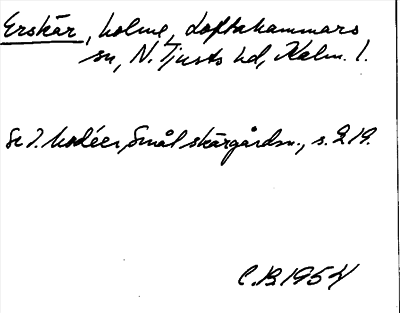 Erskär, holme, Loftahammars
sn, N. Tjusts hd, Kalm. l.
Se I. Modéer, Smål skärgårdsn., s. 219.
C.B. 1954